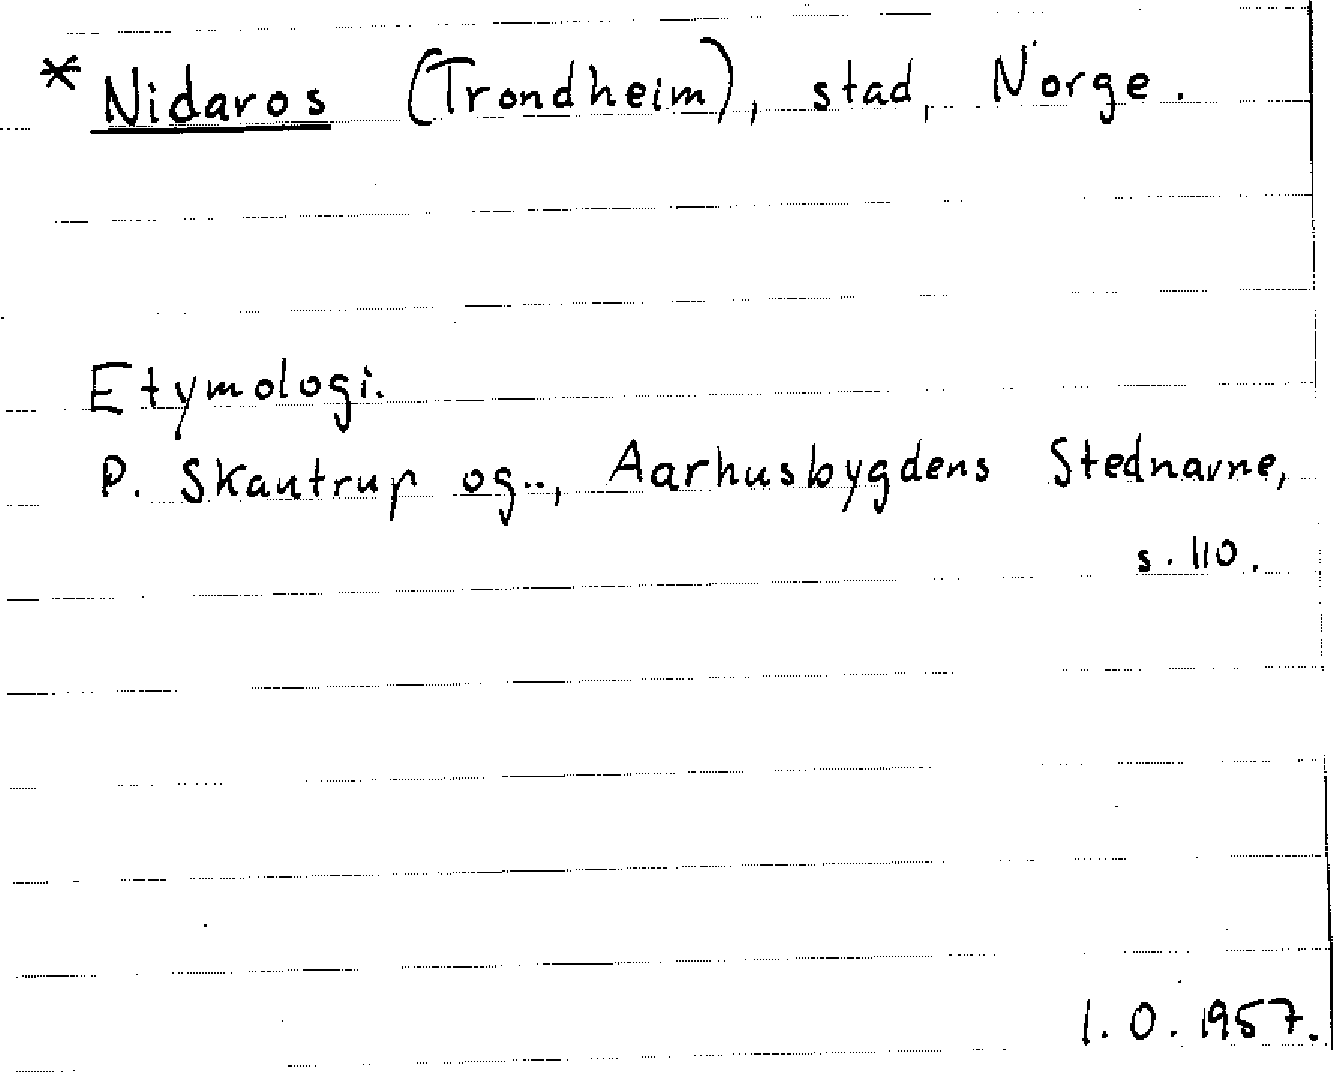 * Nidaros (Trondheim), stad, Norge.
Etymologi.
P. Skautrup og.., Aarhusbygdens Stednavne,
s. 110.
1. O. 1957.